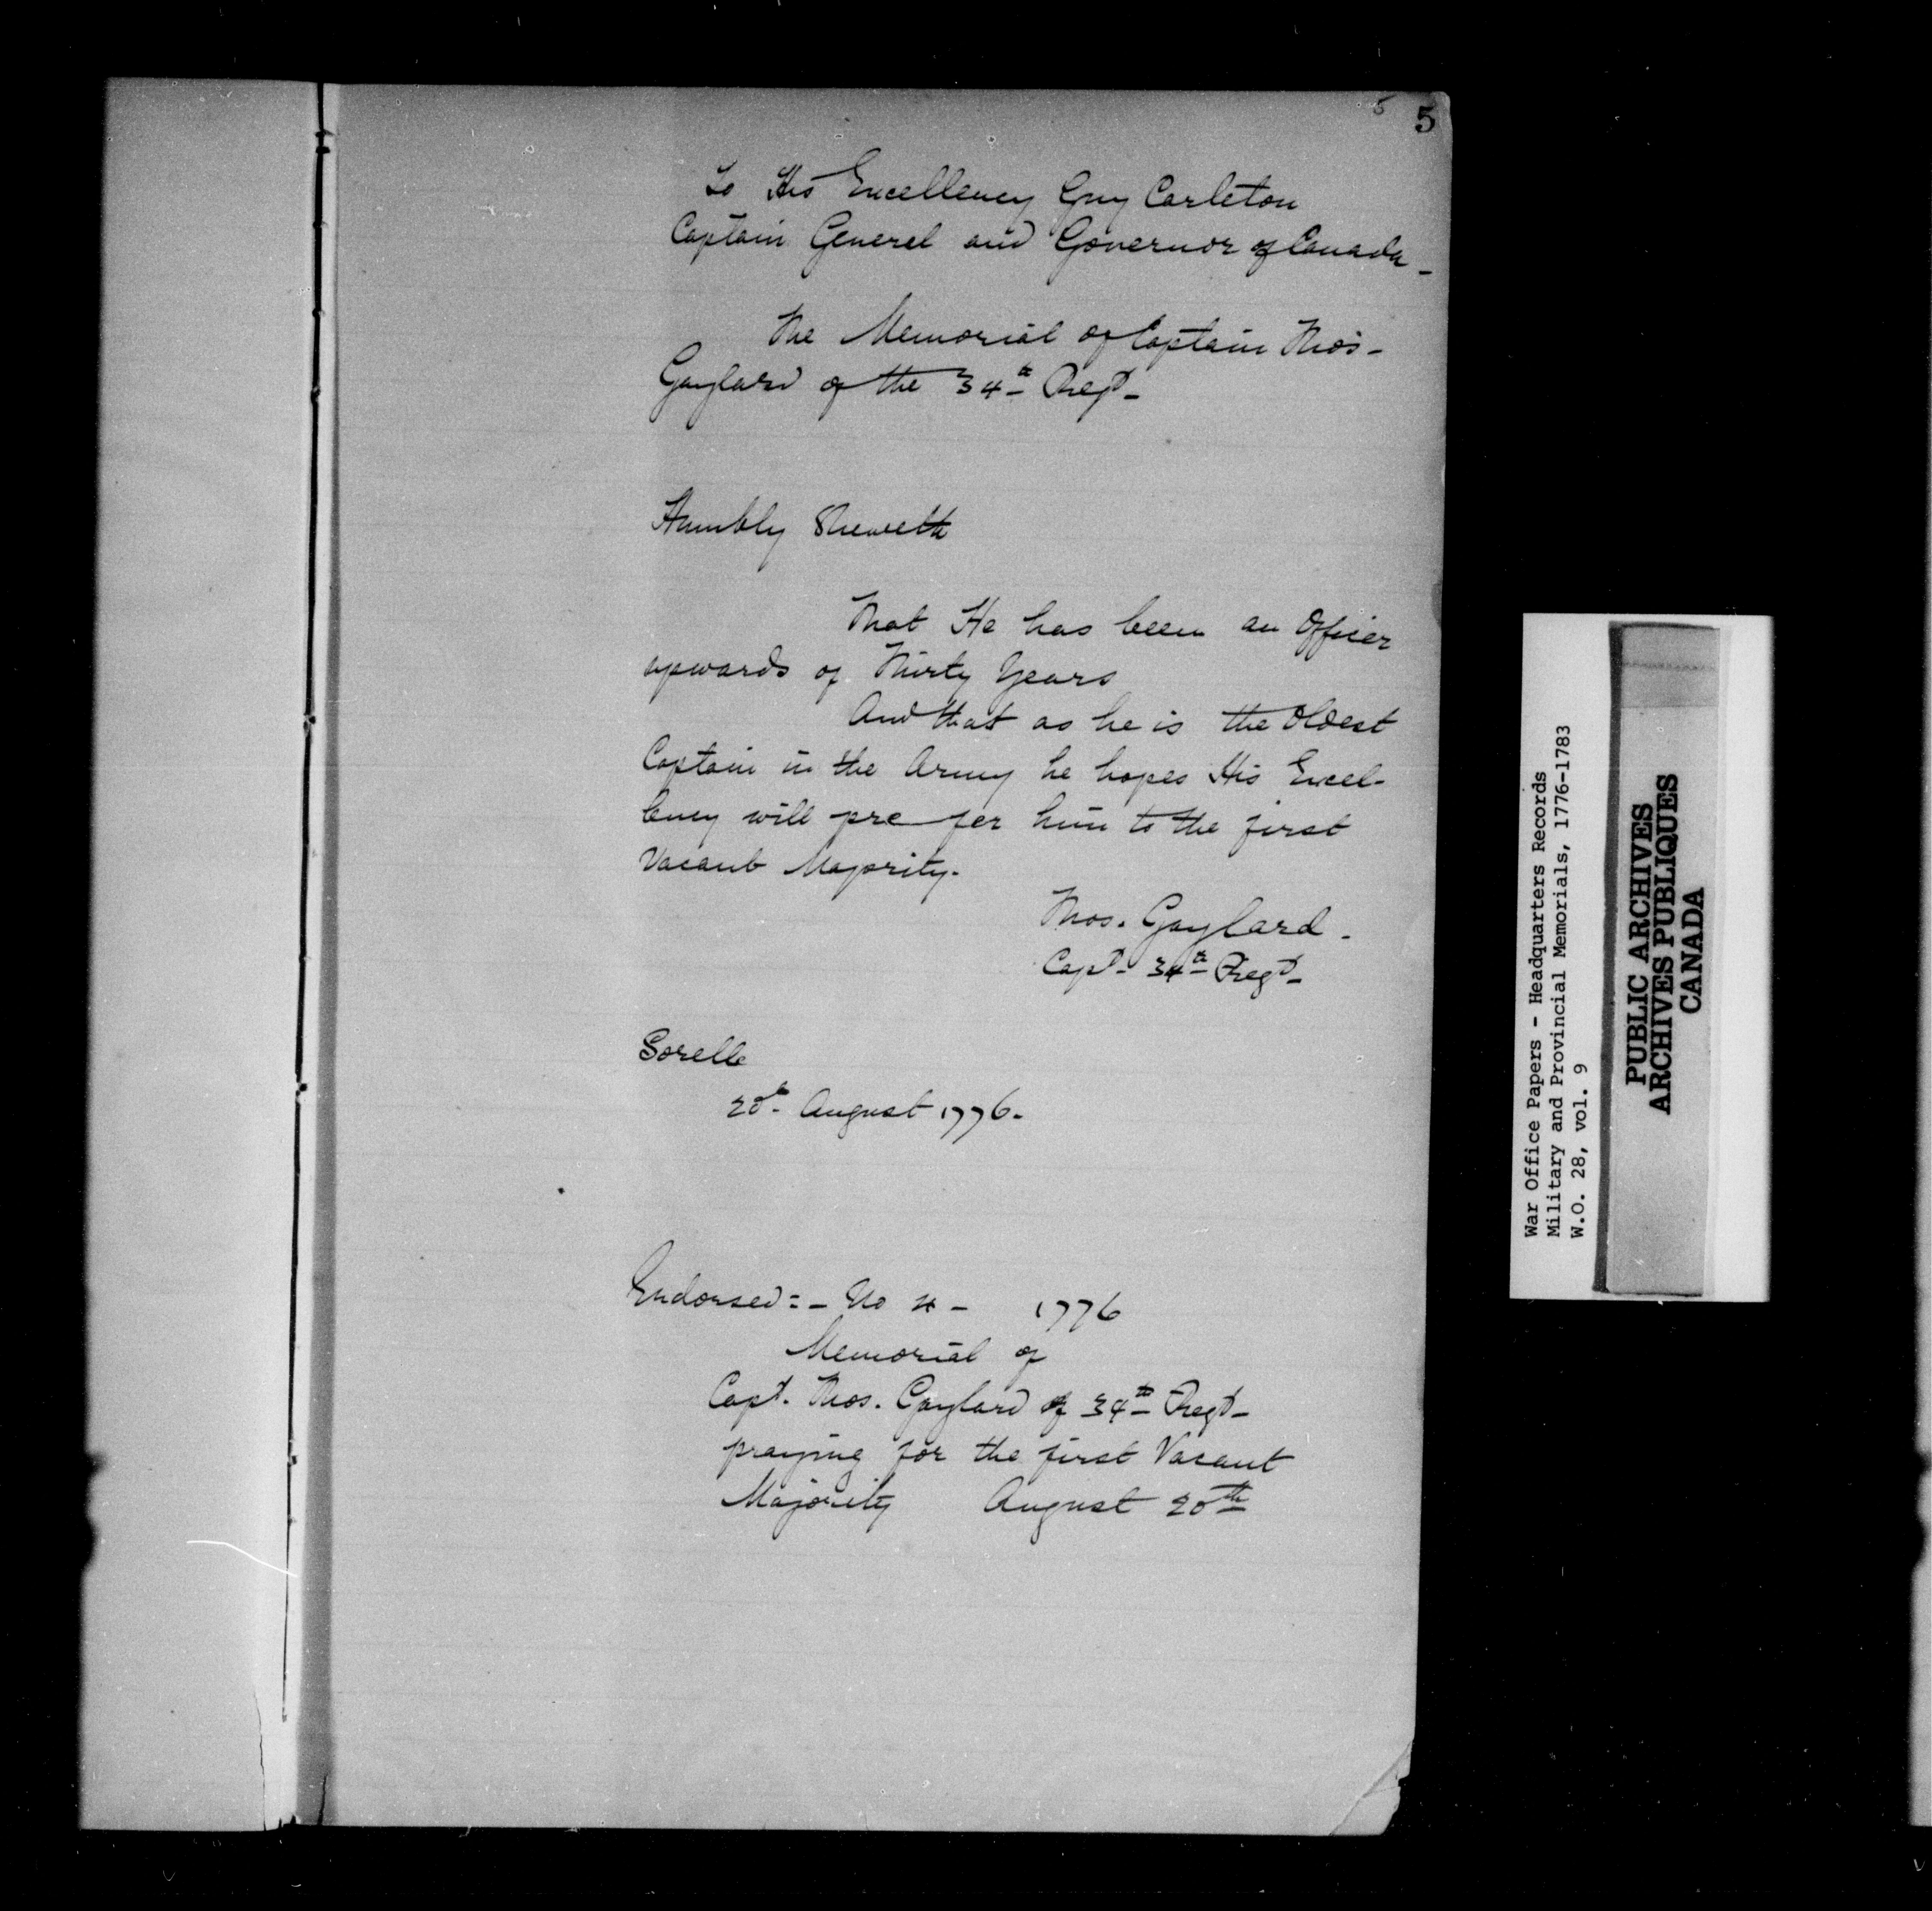 5 5
To His Excellency Guy Carleton
Captain General and Governor of Canada -
The Memorial of Captain Thos -
Gaylard of the 34th Regt -
Humbly Sheweth
That He has been an Officer
upwards of Thirty Years
And that as he is the Oldest
Captain in the Army he hopes His Excel-
lency will prefer him to the first
Vacant Majority.
Thos. Gaylard -
Capt - 34th Regt -
Sorelle
20th August 1776 -
Endorsed: - No 4 - 1776
Memorial of
Capt. Thos. Gaylard of 34th Regt -
praying for the first Vacant
Majority August 20th
War Office Papers - Headquarters Records
Military and Provincial Memorials, 1776-1783
W.O. 28, vol. 9
PUBLIC ARCHIVES
ARCHIVES PUBLIQUES
CANADA